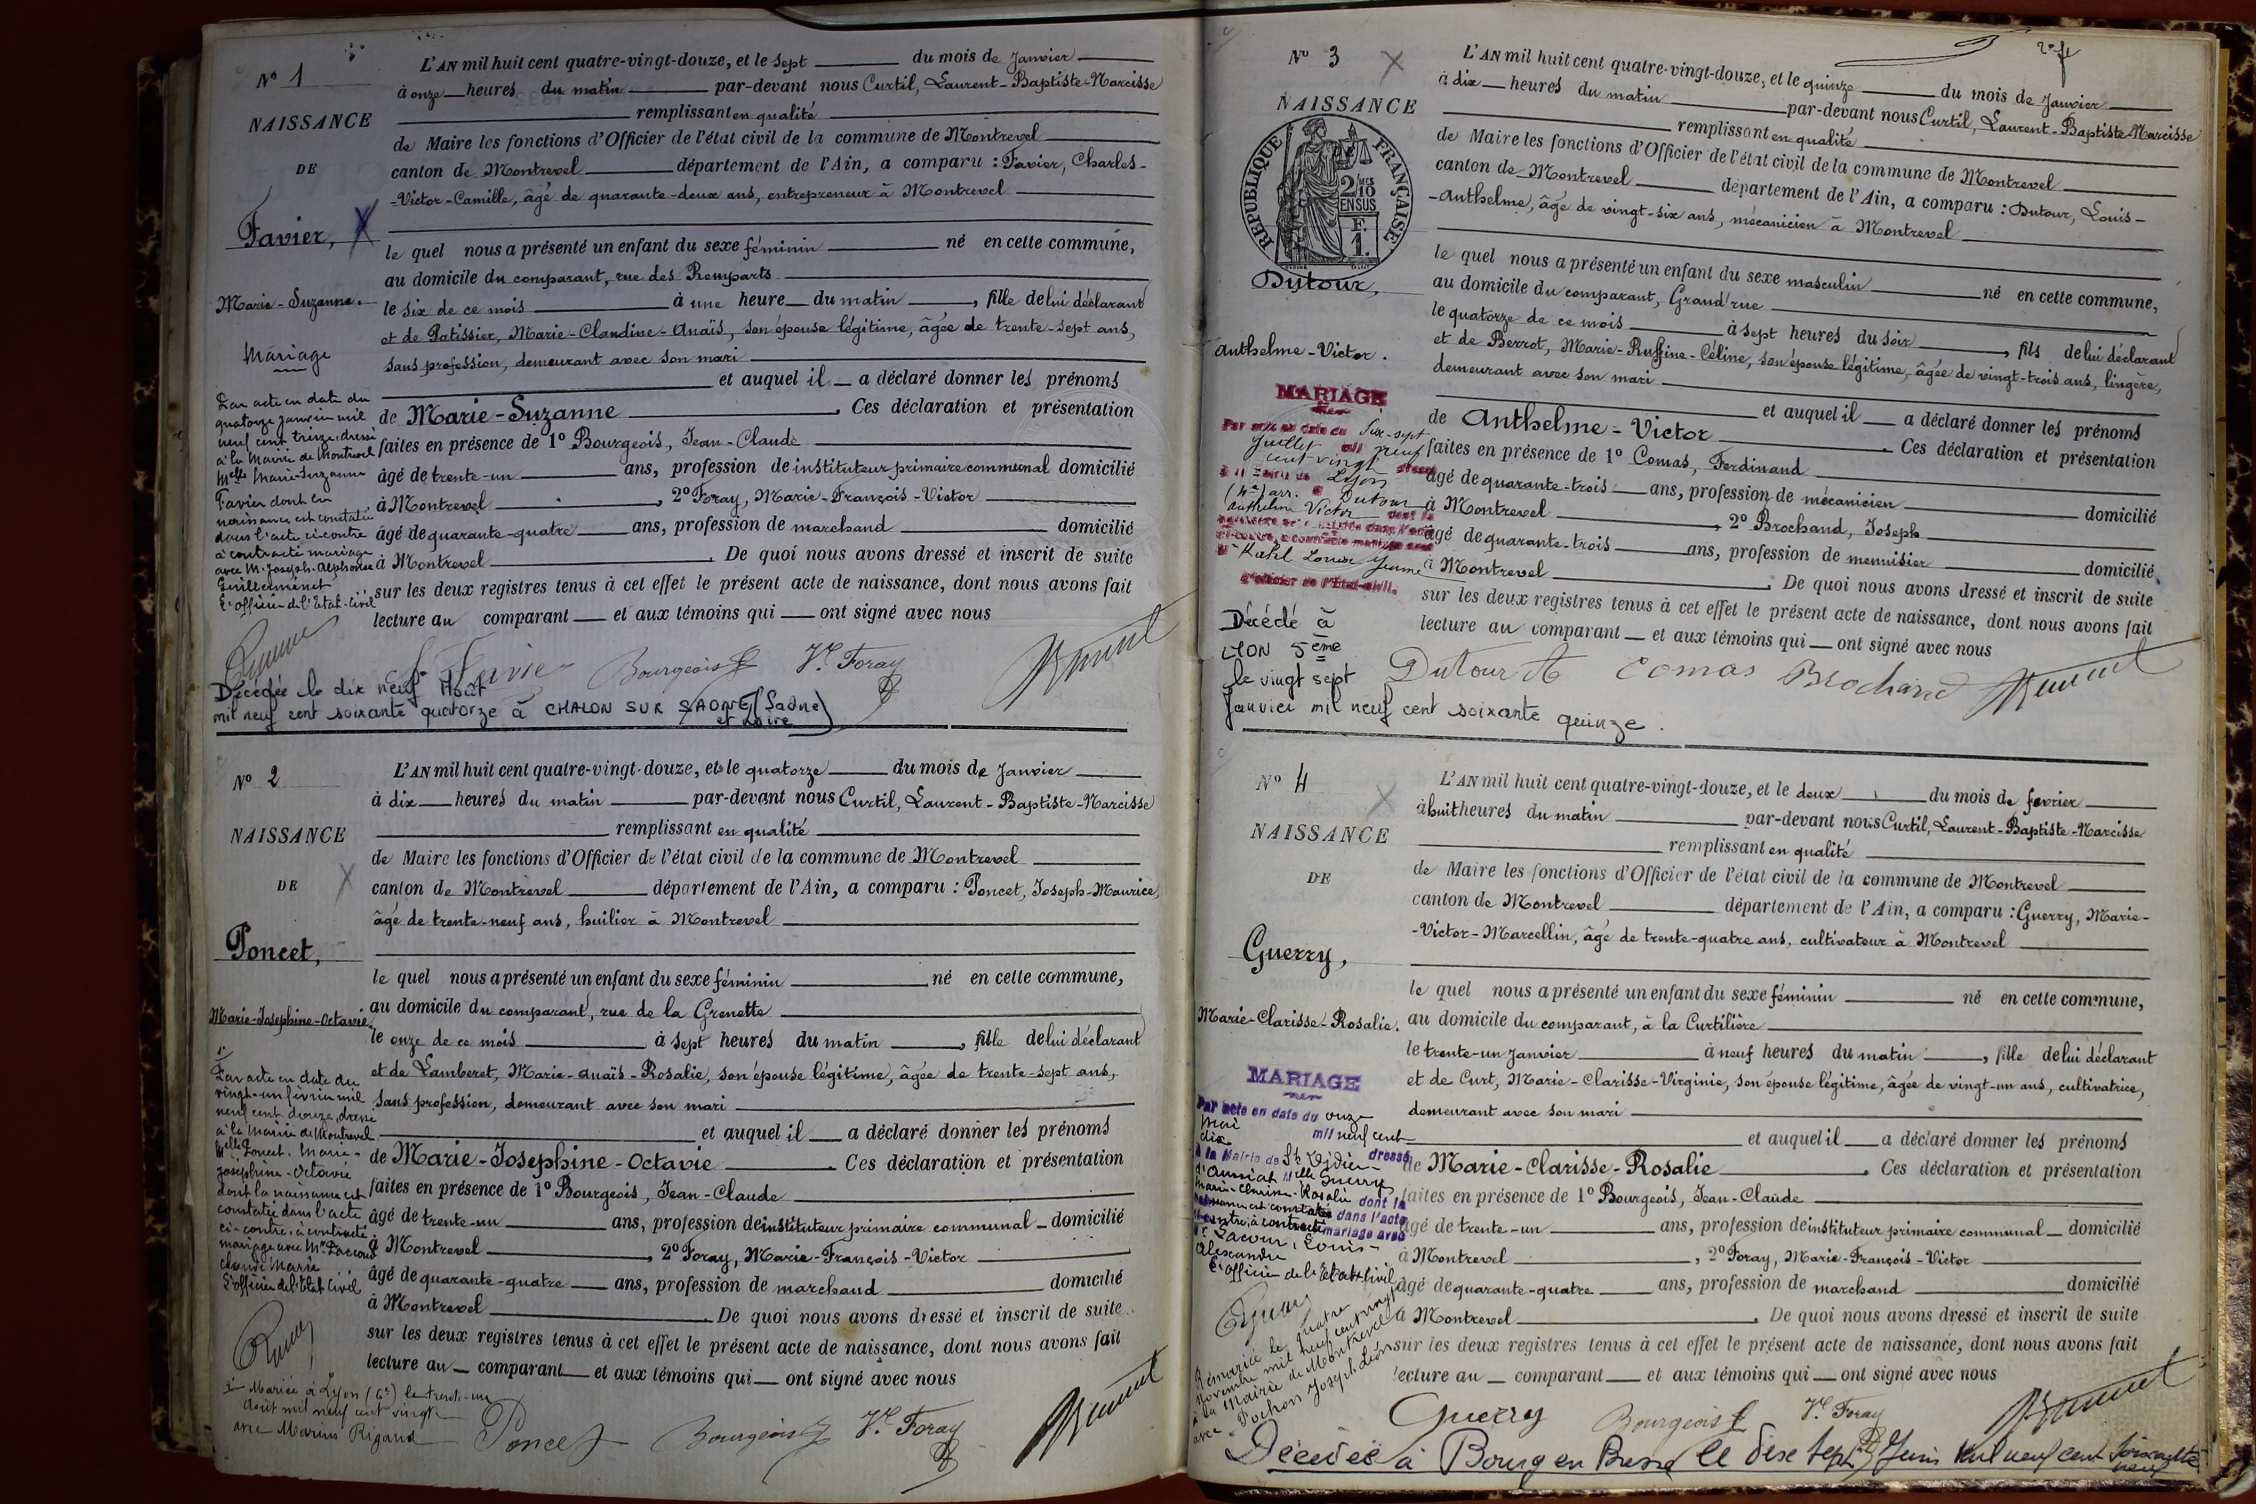 Nº 1
NAISSANCE
DE
Favier,
Marie-Suzanne.
Mariage
Par acte en date du
quatorze janvier mil
neuf cent treize, dressé
à la Mairie de Montrevel
Melle Marie-Suzanne
Favier dont la
naissance est constatée
dans l'acte ci-contre
a contracté mariage
avec M. Joseph-Alphonse
Guillerminet
L'officier de l'Etat-Civil
L'AN mil huit cent quatre-vingt-douze, et le sept du mois de Janvier
à onze heures du matin par-devant nous Curtil, Laurent-Baptiste-Narcisse
remplissant en qualité
de Maire les fonctions d'Officier de l'état civil de la commune de Montrevel
canton de Montrevel département de l'Ain, a comparu : Favier, Charles-
-Victor-Camille, âgé de quarante-deux ans, entrepreneur à Montrevel
le quel nous a présenté un enfant du sexe féminin né en cette commune,
au domicile du comparant, rue des Remparts
le six de ce mois à une heure du matin, fille de lui déclarant
et de Patissier, Marie-Claudine-Anaïs, son épouse légitime, âgée de trente-sept ans,
sans profession, demeurant avec son mari
et auquel il a déclaré donner les prénoms
de Marie-Suzanne. Ces déclaration et présentation
faites en présence de 1º Bourgeois, Jean-Claude
âgé de trente-un ans, profession de instituteur primaire communal domicilié
à Montrevel, 2º Foray, Marie-François-Victor
âgé de quarante-quatre ans, profession de marchand domicilié
à Montrevel. De quoi nous avons dressé et inscrit de suite
sur les deux registres tenus à cet effet le présent acte de naissance, dont nous avons fait
lecture au comparant et aux témoins qui ont signé avec nous
Bourgeois Vr Foray
Décédée le dix neuf Août
mil neuf cent soixante quatorze à CHALON SUR SAONE (Saône
et Loire)
Nº 2
NAISSANCE
DE
Poncet,
Marie-Josephine-Octavie.
1º
Par acte en date du
vingt-un février mil
neuf cent douze, dressé
à la Mairie de Montrevel
Melle Poncet, Marie-
Josephine-Octavie
dont la naissance est
constatée dans l'acte
ci-contre, a contracté
mariage avec Mr
Claude Marie
L'officier de l'Etat Civil
2º Mariée à Lyon (6e) le trente-un
août mil neuf cent vingt
avec Marius Rigaud
L'AN mil huit cent quatre-vingt-douze, et le quatorze du mois de Janvier
à dix heures du matin par-devant nous Curtil, Laurent-Baptiste-Narcisse
remplissant en qualité
de Maire les fonctions d'Officier de l'état civil de la commune de Montrevel
canton de Montrevel département de l'Ain, a comparu : Poncet, Joseph-Maurice,
âgé de trente-neuf ans, huilier à Montrevel
le quel nous a présenté un enfant du sexe féminin né en cette commune,
au domicile du comparant, rue de la Grenette
le onze de ce mois à sept heures du matin, fille de lui déclarant
et de Lamberet, Marie-Anaïs-Rosalie, son épouse légitime, âgée de trente-sept ans,
sans profession, demeurant avec son mari
et auquel il a déclaré donner les prénoms
de Marie-Josephine-Octavie. Ces déclaration et présentation
faites en présence de 1º Bourgeois, Jean-Claude
âgé de trente-un ans, profession de instituteur primaire communal domicilié
à Montrevel, 2º Foray, Marie-François-Victor
âgé de quarante-quatre ans, profession de marchand domicilié
à Montrevel. De quoi nous avons dressé et inscrit de suite
sur les deux registres tenus à cet effet le présent acte de naissance, dont nous avons fait
lecture au comparant et aux témoins qui ont signé avec nous
Poncet Bourgeois Vr Foray
Nº 3
NAISSANCE
RÉPUBLIQUE FRANÇAISE
2/10 EN SUS
F. 1.
Dutour,
Anthelme-Victor.
MARIAGE
Par acte en date du dix-sept
Juillet mil neuf
cent vingt dressé
à la Mairie de Lyon
arr. Dutour
Anthelme Victor dont la
naissance est constatée dans l'acte
ci-contre, a contracté mariage avec
L'Officier de l'Etat-civil.
Décédé à
LYON 5ème
le vingt sept
Janvier mil neuf cent soixante quinze.
L'AN mil huit cent quatre-vingt-douze, et le quinze du mois de Janvier
à dix heures du matin par-devant nous Curtil, Laurent-Baptiste-Narcisse
remplissant en qualité
de Maire les fonctions d'Officier de l'état civil de la commune de Montrevel
canton de Montrevel département de l'Ain, a comparu : Dutour, Louis-
-Anthelme, âgé de vingt-six ans, mécanicien à Montrevel
le quel nous a présenté un enfant du sexe masculin né en cette commune,
au domicile du comparant, Grand'rue
le quatorze de ce mois à sept heures du soir, fils de lui déclarant
et de Berrot, Marie-Ruffine-Céline, son épouse légitime, âgée de vingt-trois ans, lingère,
demeurant avec son mari
et auquel il a déclaré donner les prénoms
de Anthelme-Victor. Ces déclaration et présentation
faites en présence de 1º Comas, Ferdinand
âgé de quarante-trois ans, profession de mécanicien domicilié
à Montrevel, 2º Brochand, Joseph
âgé de quarante-trois ans, profession de menuisier domicilié
à Montrevel. De quoi nous avons dressé et inscrit de suite
sur les deux registres tenus à cet effet le présent acte de naissance, dont nous avons fait
lecture au comparant et aux témoins qui ont signé avec nous
Dutour A Comas Brochand
Nº 4
NAISSANCE
DE
Guerry,
Marie-Clarisse-Rosalie.
MARIAGE
Par acte en date du onze
Mai mil neuf cent
dix dressé
à la Mairie de St Didier
d'Aussiat Melle Guerry
Marie-Clarisse-Rosalie dont la
naissance est constatée dans l'acte
ci-contre, a contracté mariage avec
Mr Lacour, Louis-
Alexandre
L'officier de l'Etat-Civil
Remariée le quatre
novembre mil neuf cent vingt
à la Mairie de Montrevel
avec Pochon Joseph Léon
L'AN mil huit cent quatre-vingt-douze, et le deux du mois de fevrier
à huit heures du matin par-devant nous Curtil, Laurent-Baptiste-Narcisse
remplissant en qualité
de Maire les fonctions d'Officier de l'état civil de la commune de Montrevel
canton de Montrevel département de l'Ain, a comparu : Guerry, Marie-
-Victor-Marcellin, âgé de trente-quatre ans, cultivateur à Montrevel
le quel nous a présenté un enfant du sexe féminin né en cette commune,
au domicile du comparant, à la Curtilière
le trente-un Janvier à neuf heures du matin, fille de lui déclarant
et de Curt, Marie-Clarisse-Virginie, son épouse légitime, âgée de vingt-un ans, cultivatrice,
demeurant avec son mari
et auquel il a déclaré donner les prénoms
de Marie-Clarisse-Rosalie. Ces déclaration et présentation
faites en présence de 1º Bourgeois, Jean-Claude
âgé de trente-un ans, profession de instituteur primaire communal domicilié
à Montrevel, 2º Foray, Marie-François-Victor
âgé de quarante-quatre ans, profession de marchand domicilié
à Montrevel. De quoi nous avons dressé et inscrit de suite
sur les deux registres tenus à cet effet le présent acte de naissance, dont nous avons fait
lecture au comparant et aux témoins qui ont signé avec nous
Guerry Bourgeois Vr Foray
Décédée à Bourg en Bresse le dix sept Juin mil neuf cent soixante
neuf